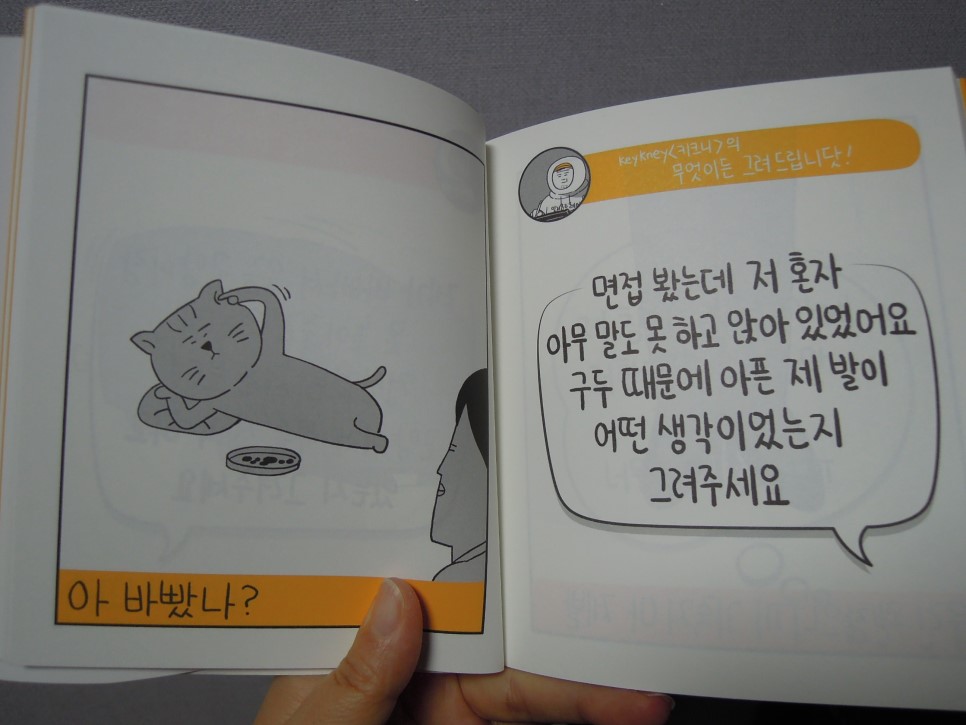 아 바빴나?
keykney<키크니>의
무엇이든 그려 드립니닷!
면접 봤는데 저 혼자
아무 말도 못 하고 앉아 있었어요
구두 때문에 아픈 제 발이
어떤 생각이었는지
그려주세요